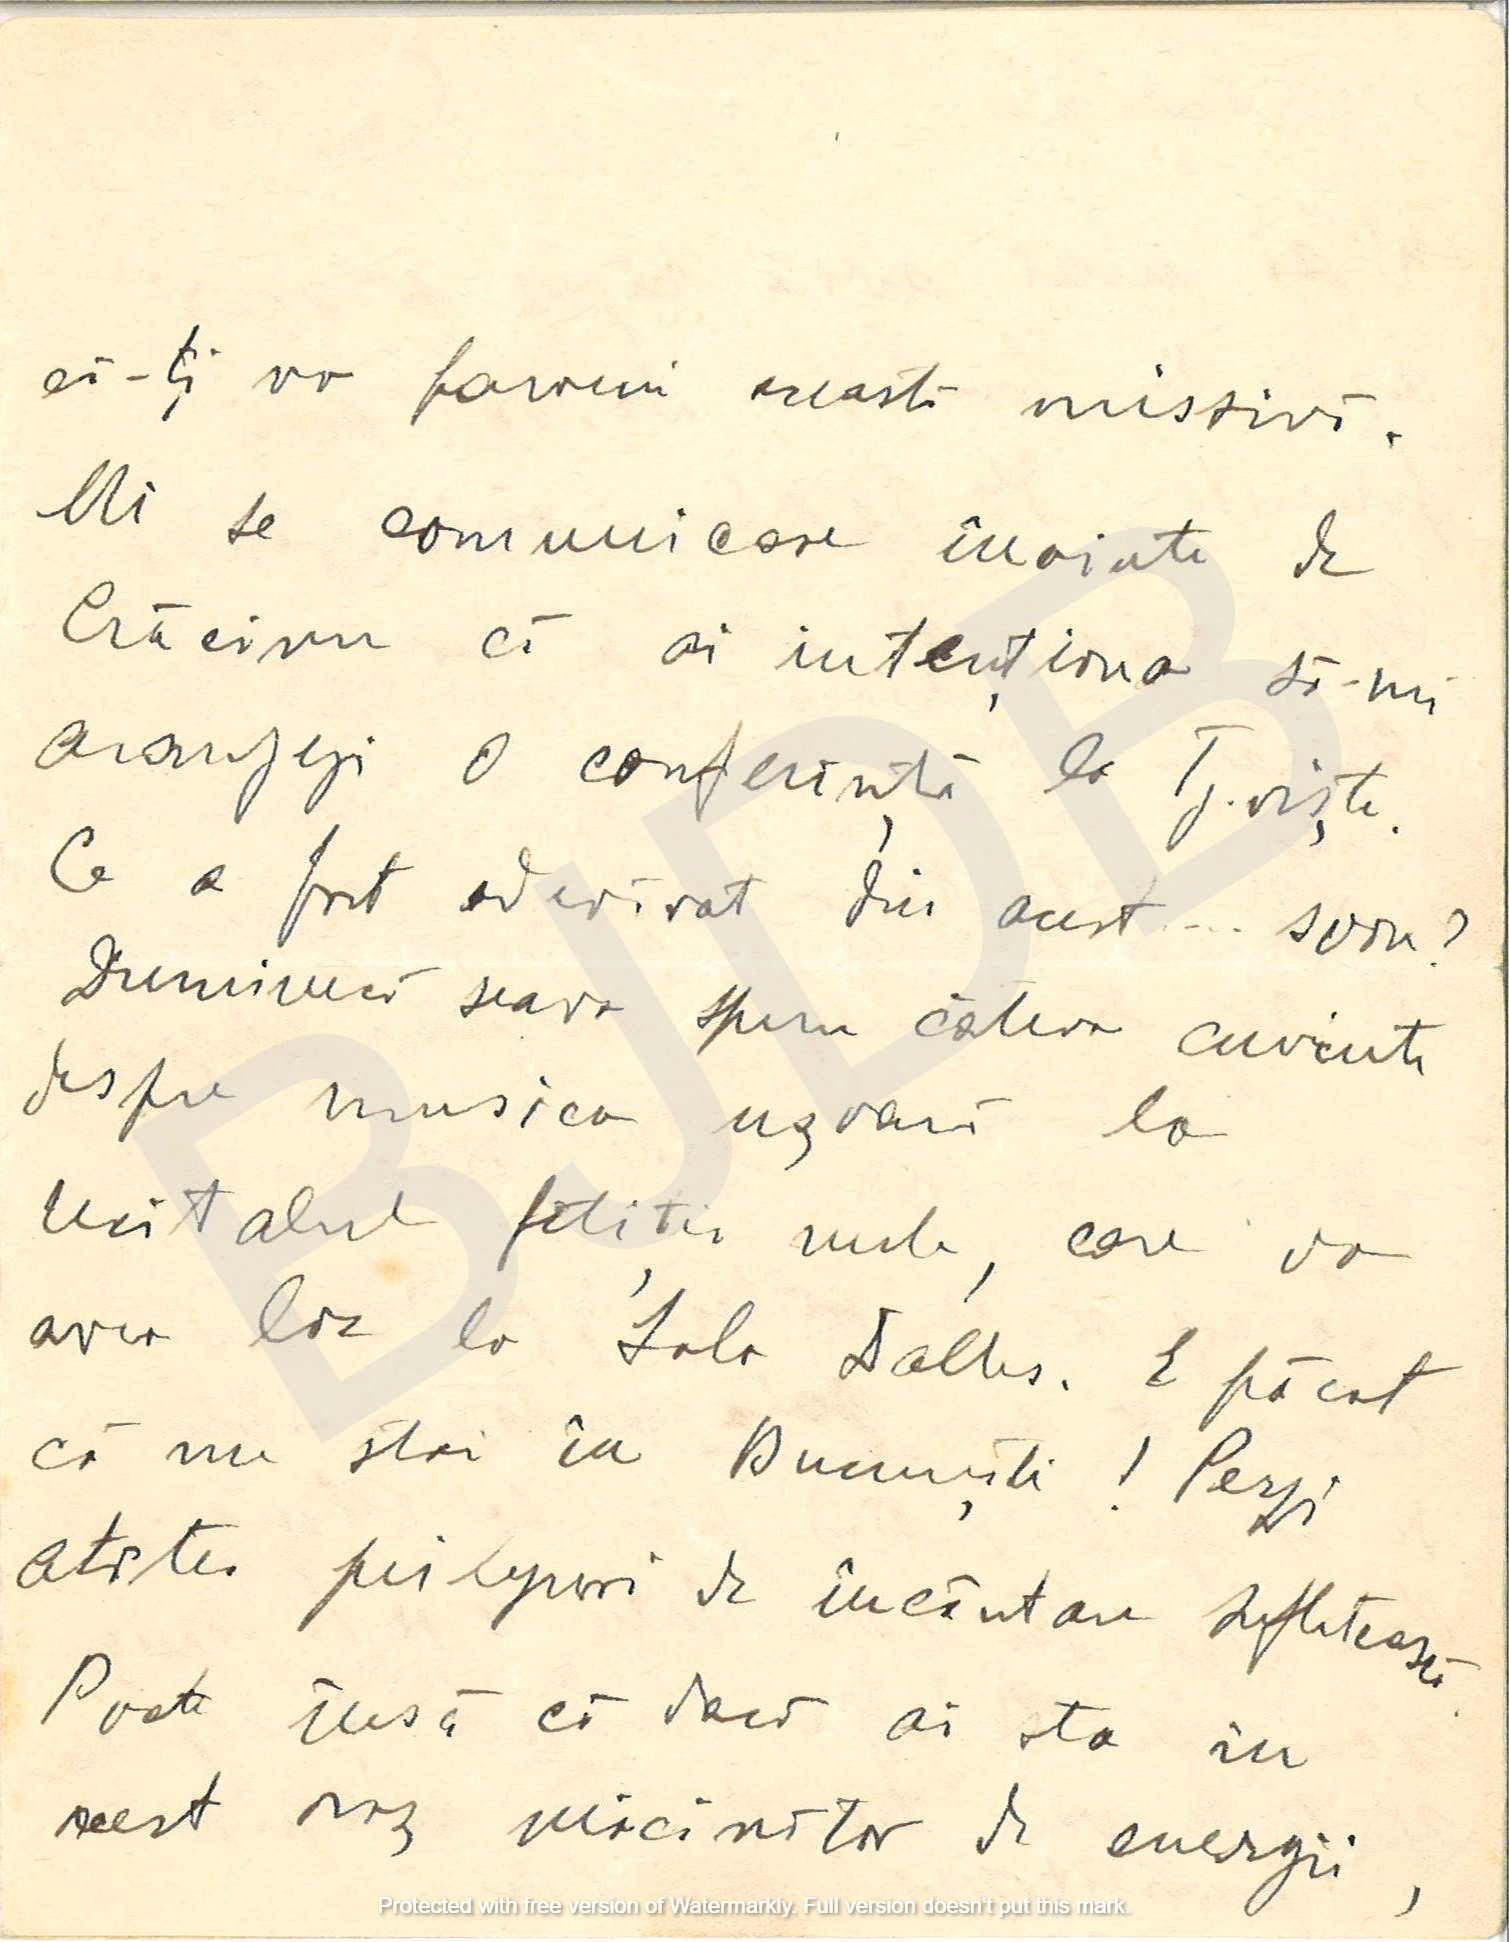 că-ți va parveni această missivă.
Mi se comunicase înainte de
Crăciun că ai intenționa să-mi
aranjezi o conferință la Tg.viște.
Ce a fost adevărat din acest... svon?
Duminecă seara spun câteva cuvinte
despre musica ușoară la
recitalul fetiței mele, care va
avea loc la Sala Dalles. E păcat
că nu stai în București! Perzi
atâtea prilejuri de încântare sufletească.
Poate însă că dacă ai sta in
acest oraș măcinător de energii,
BJDB
Protected with free version of Watermarkly. Full version doesn't put this mark.